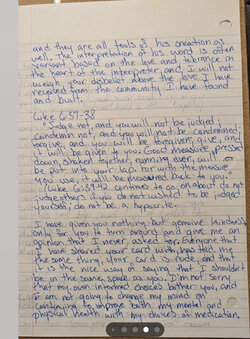 and they are all tools of his creation as
well. The interpretation of his word is often
variant based on the love and tolerance in
the heart of the interpreter, and I will not
weigh your disbelief above the love I have
received from the community I have found
and built.
Luke 6:37-38
"Judge not and you will not be judged;
condemn not, and you will not be condemned;
forgive, and you will be forgiven; give, and
it will be given to you. Good measure, pressed
down, shaken together, running over, will
be put into your lap. For with the measure
you use, it will be measured back to you."
(Luke 6:39-42 continues to go on about do not
judge others if you do not wished to be judged
yourself; do not be a hypocrite.
I have given you nothing but genuine kindness,
only for you to turn around and give me an
opinion that I never asked for. Everyone that
I have shared your card with, has told me
the same thing, your card is rude, and that
it is the nice way of saying that I shouldn't
be in the same space as you. I'm not sorry
that my own informed choices bother you, and
I am not going to change my mind on
continuing to improve both my mental and
physical health with my choices of medication,